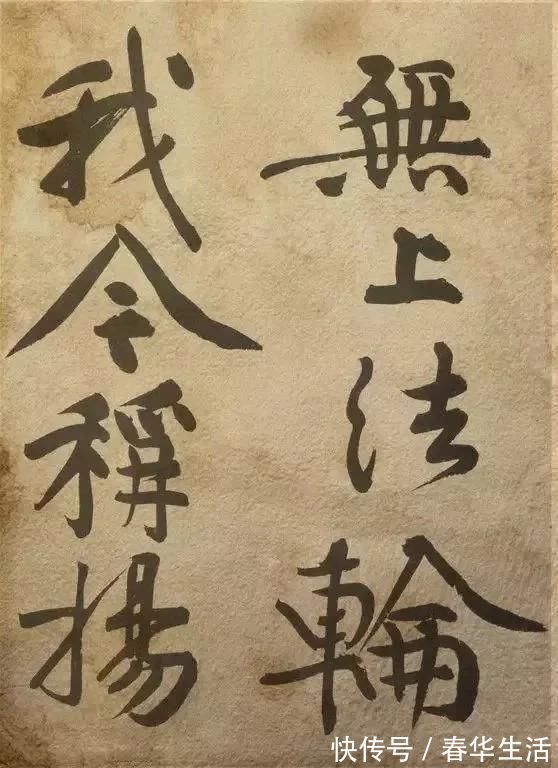 無上法輪
我今稱揚
快传号 / 春华生活